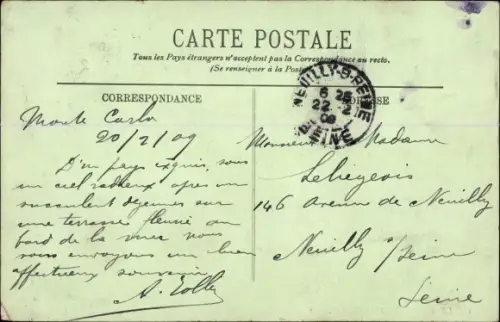 CARTE POSTALE
Tous les Pays étrangers n'acceptent pas la Correspondance au recto.
(Se renseigner à la Poste)
CORRESPONDANCE
ADRESSE
NEUILLY-S-SEINE
6
22 -2
09
SEINE
Monte Carlo
20/2/09
D'un pays exquis, sous
un ciel radieux après un
succulent déjeuner sur
une terrasse fleurie au
bord de la mer nous
vous envoyons un bien
affectueux souvenir
A.
Monsieur Madame
Leliégeois
146 Avenue de Neuilly
Neuilly s/Seine
Seine